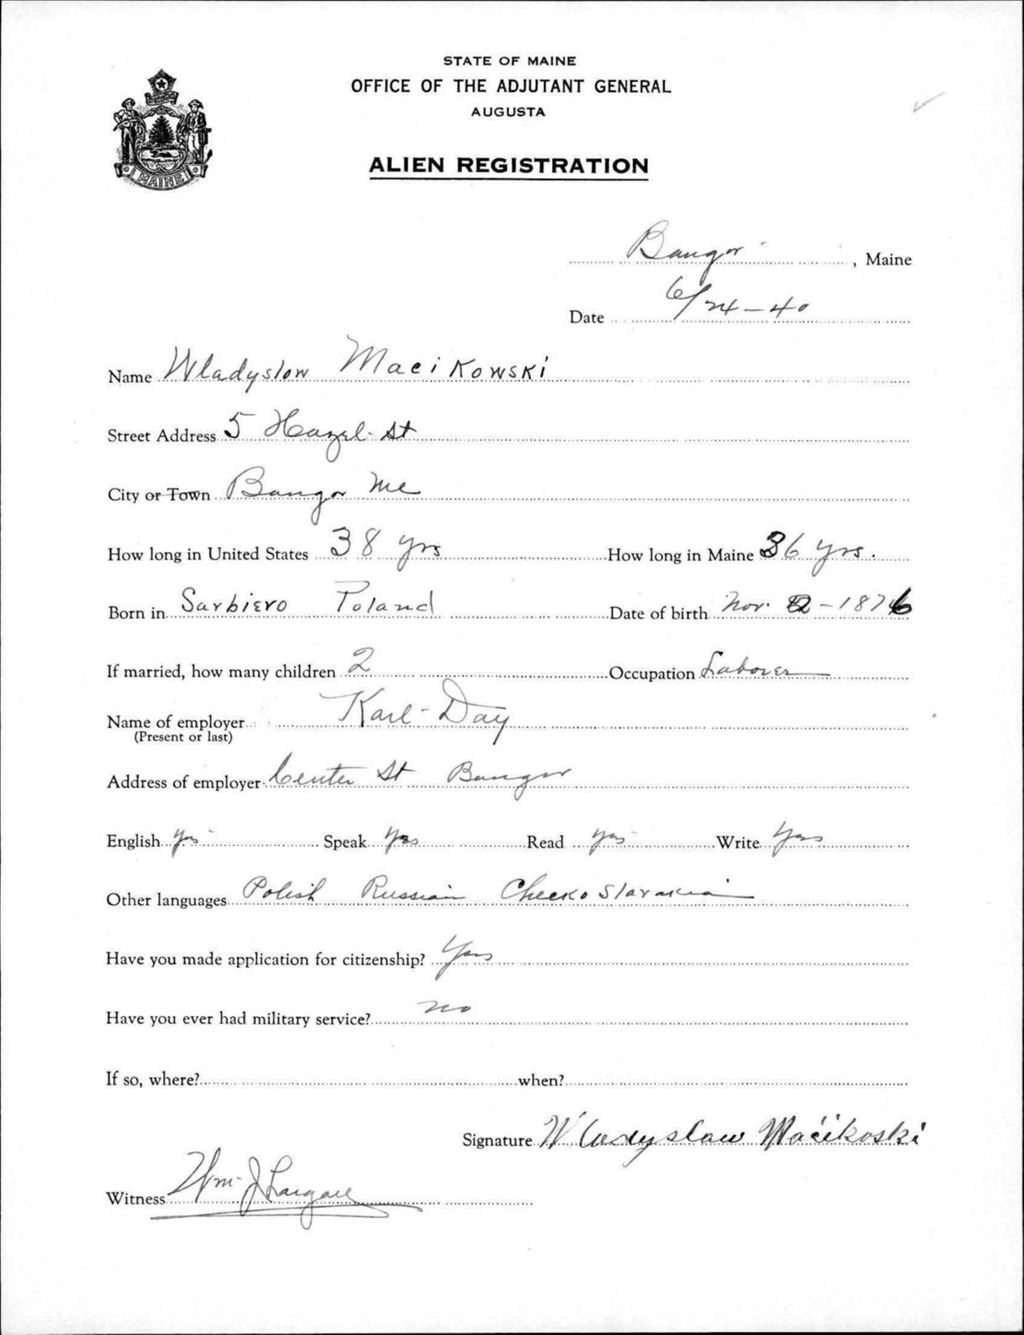 STATE OF MAINE
OFFICE OF THE ADJUTANT GENERAL
AUGUSTA
MAINE
ALIEN REGISTRATION
Bangor, Maine
Date 6/24-40
Name Wladyslow Macikowski
Street Address 5 Hazel St
City or Town Bangor Me
How long in United States 38 yrs How long in Maine 36 yrs.
Born in Sarbiero Poland Date of birth Nov. 2 - 1876
If married, how many children 2 Occupation Laborer
Name of employer Karl Day
(Present or last)
Address of employer Center St Bangor
English Yes Speak Yes Read Yes Write Yes
Other languages Polish Russian Checko Slavakia
Have you made application for citizenship? Yes
Have you ever had military service? no
If so, where? when?
Signature Wladyslaw Macikoski
Witness Wm. J.